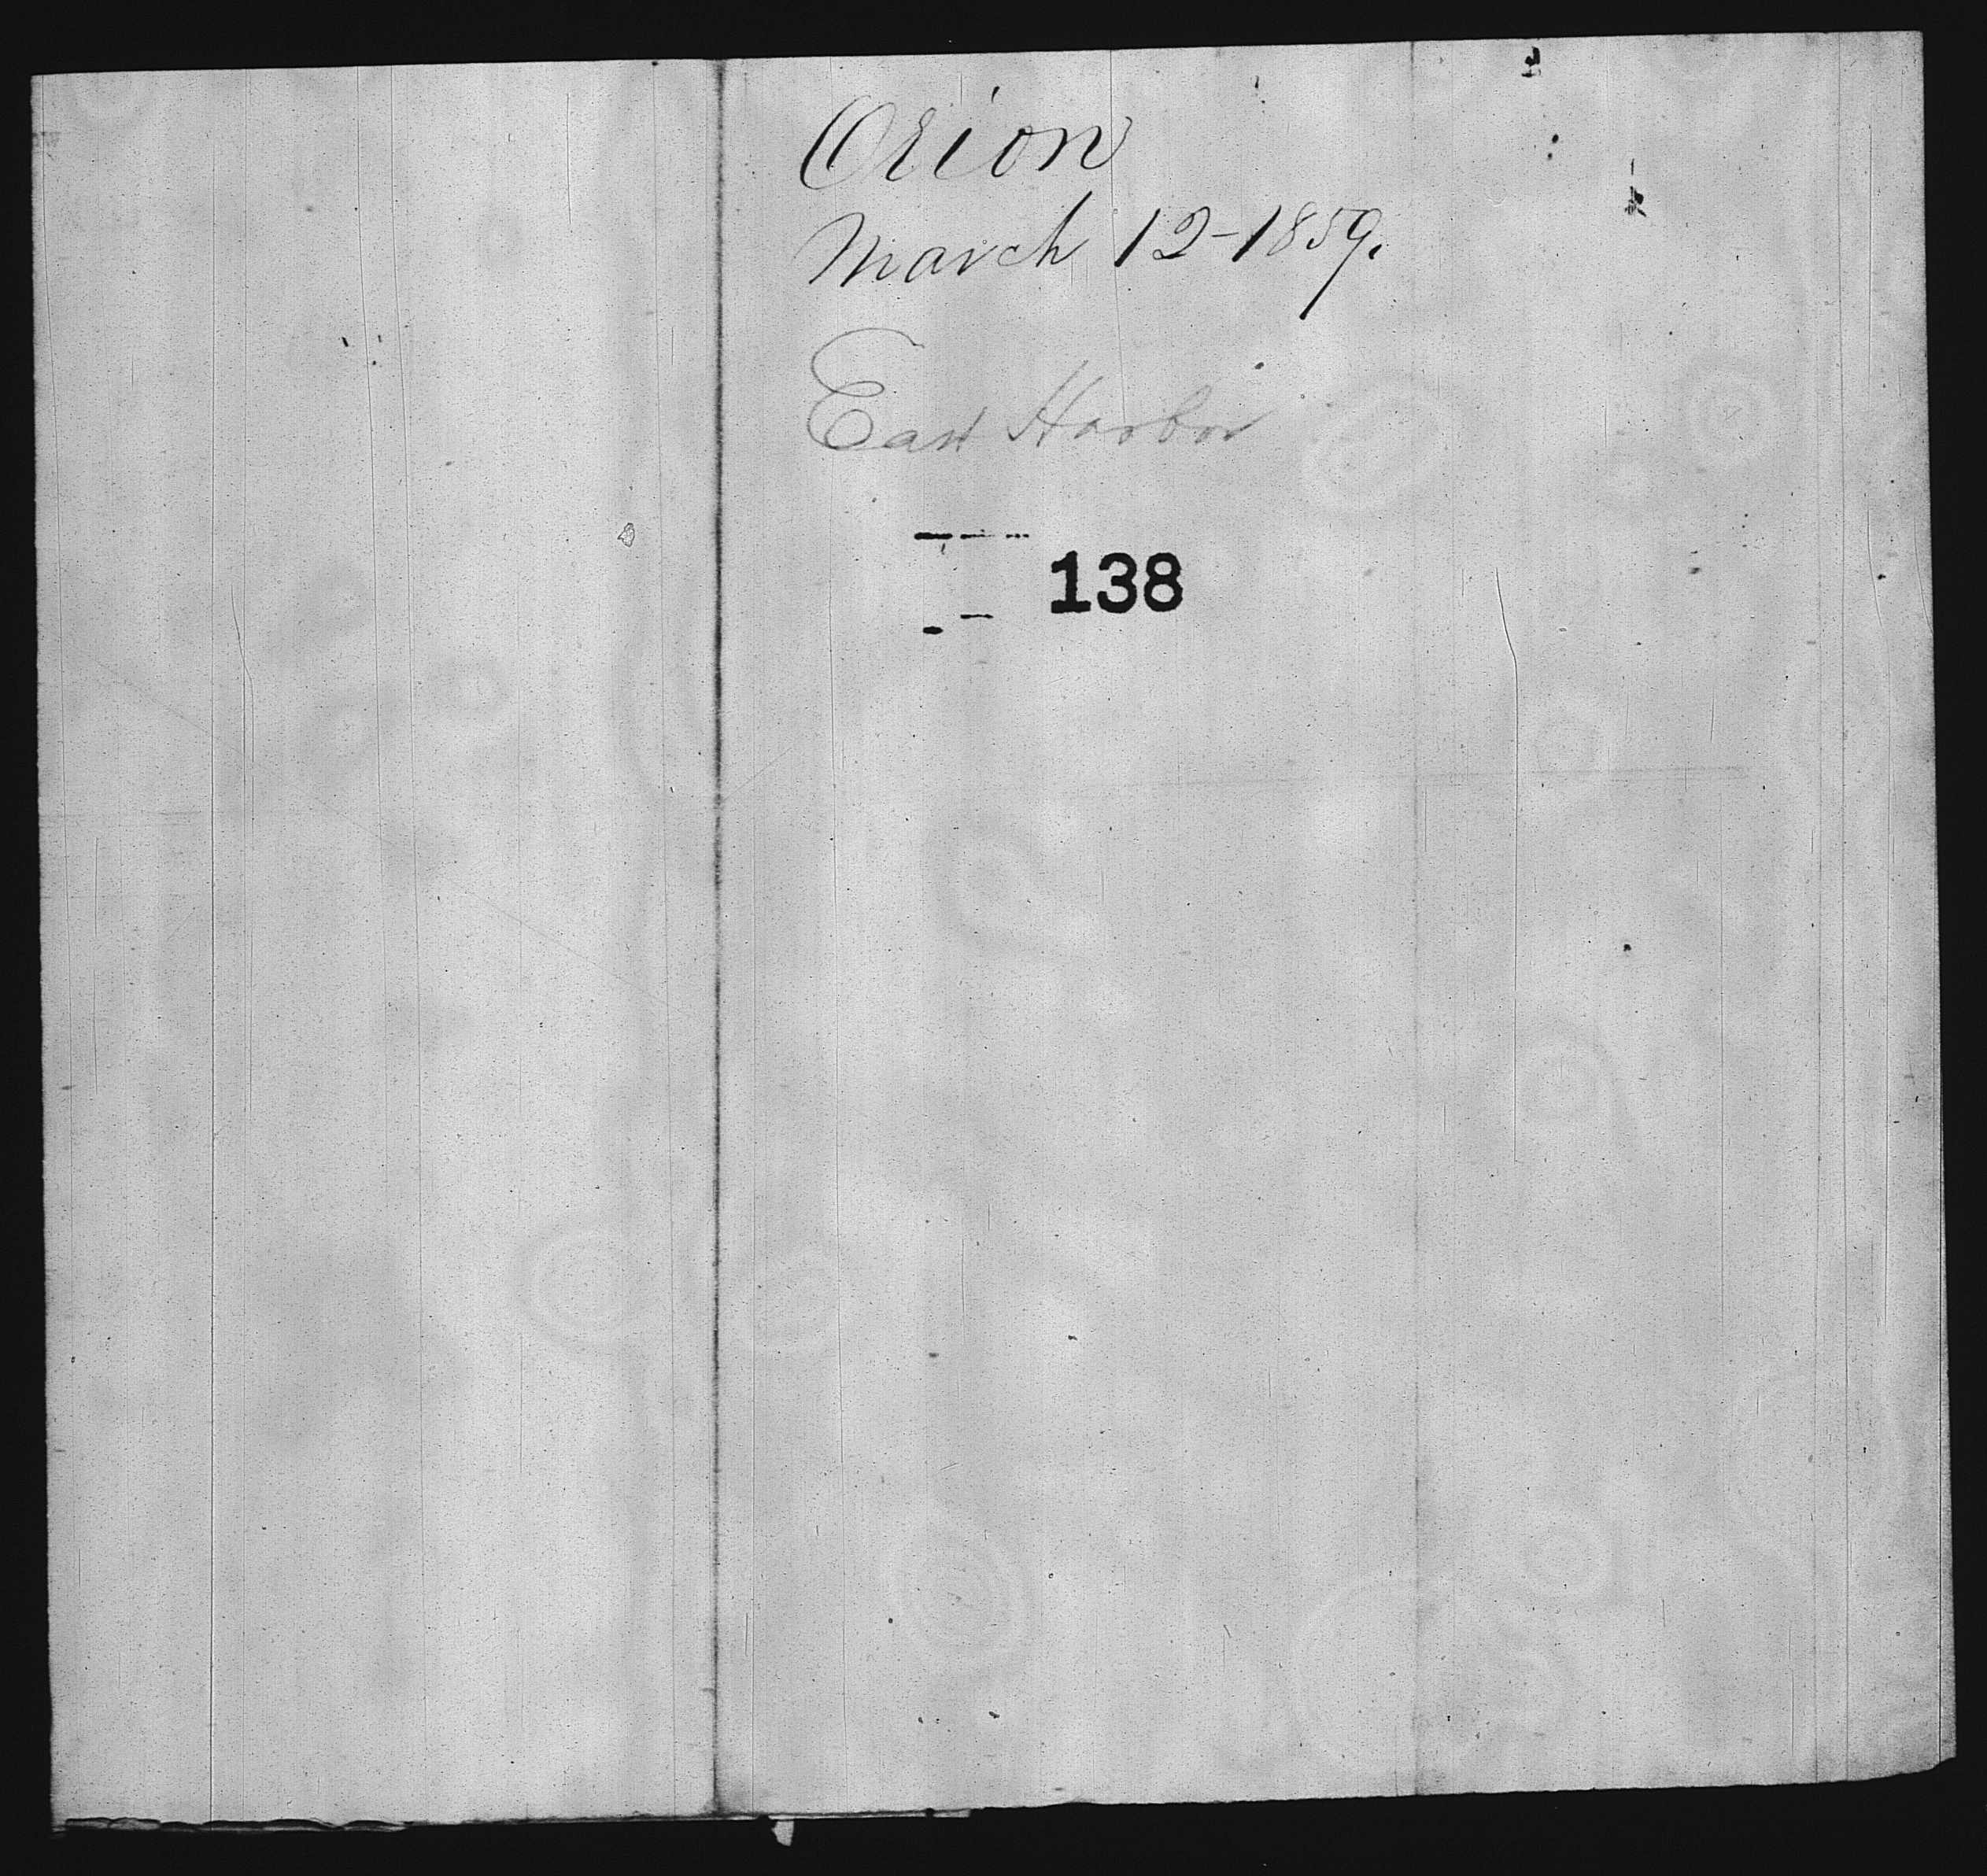 Orion
March 12-1859.
East Harbor
138